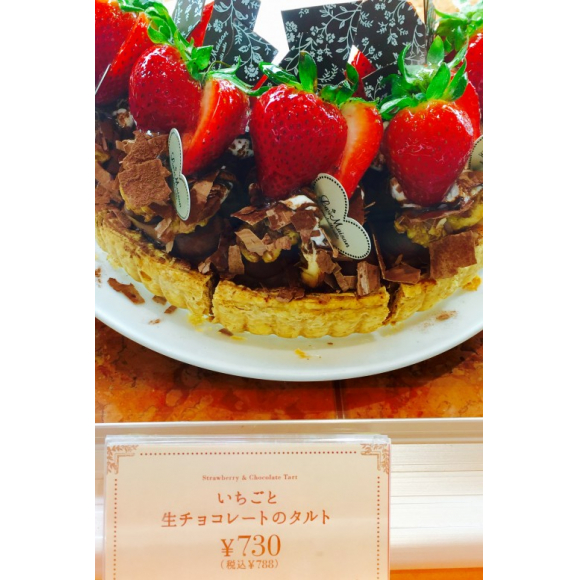 Maison
Strawberry & Chocolate Tart
いちごと
生チョコレートのタルト
¥730
(税込¥788)